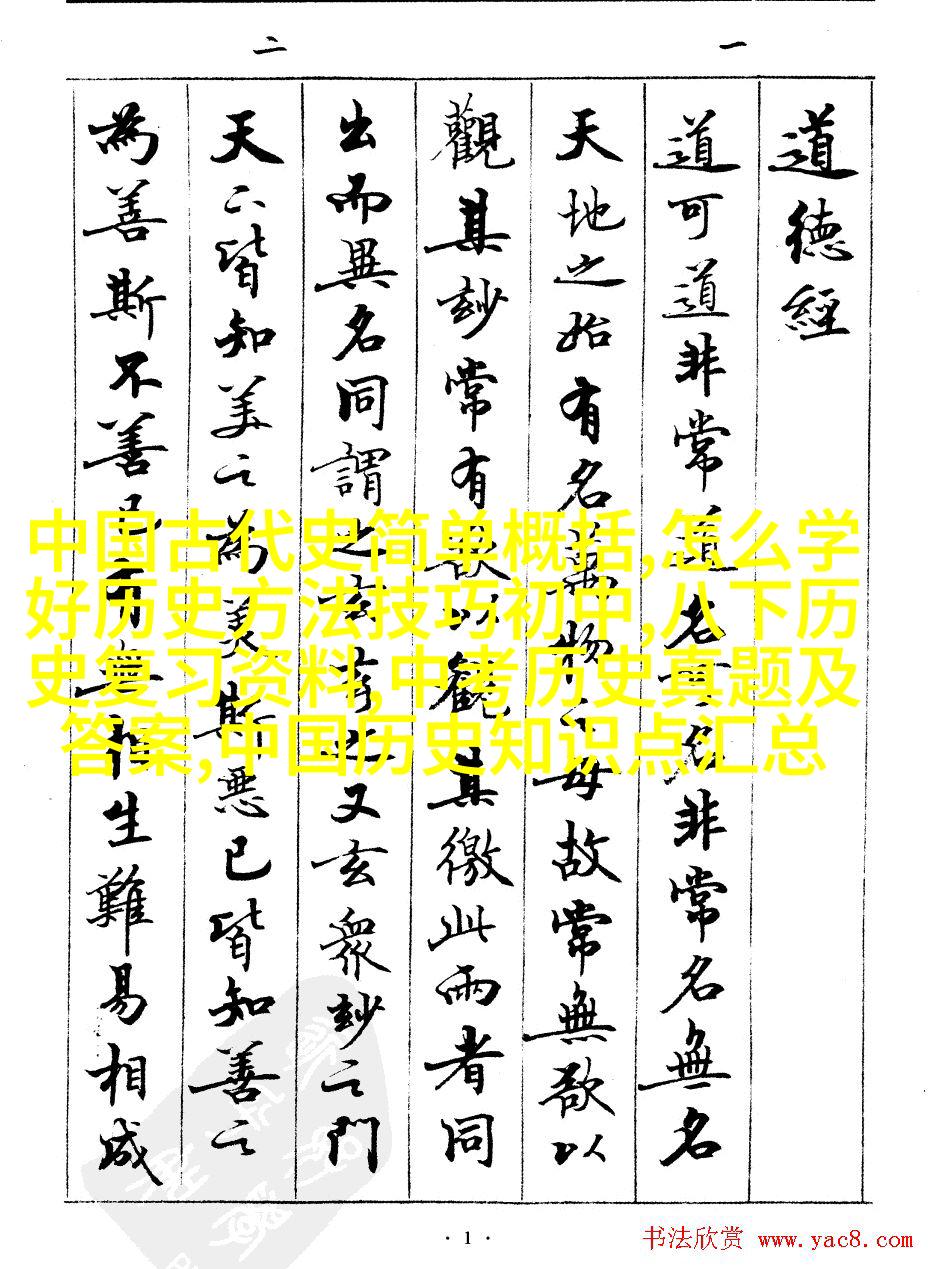 一
二
道德經
道可道非常道名可名非常名無名
天地之始有名萬物之母故常無欲以
觀其玅常有欲以觀其徼此兩者同
出而異名同謂之玄玄之又玄衆玅之門
天下皆知美之為美斯惡已皆知善之
為善斯不善已有無相生難易相成
中国古代史简单概括,怎么学
好历史方法技巧初中,八下历
史复习资料,中考历史真题及
答案,中国历史知识点汇总
· 1 ·
书法欣赏 www.yac8.com